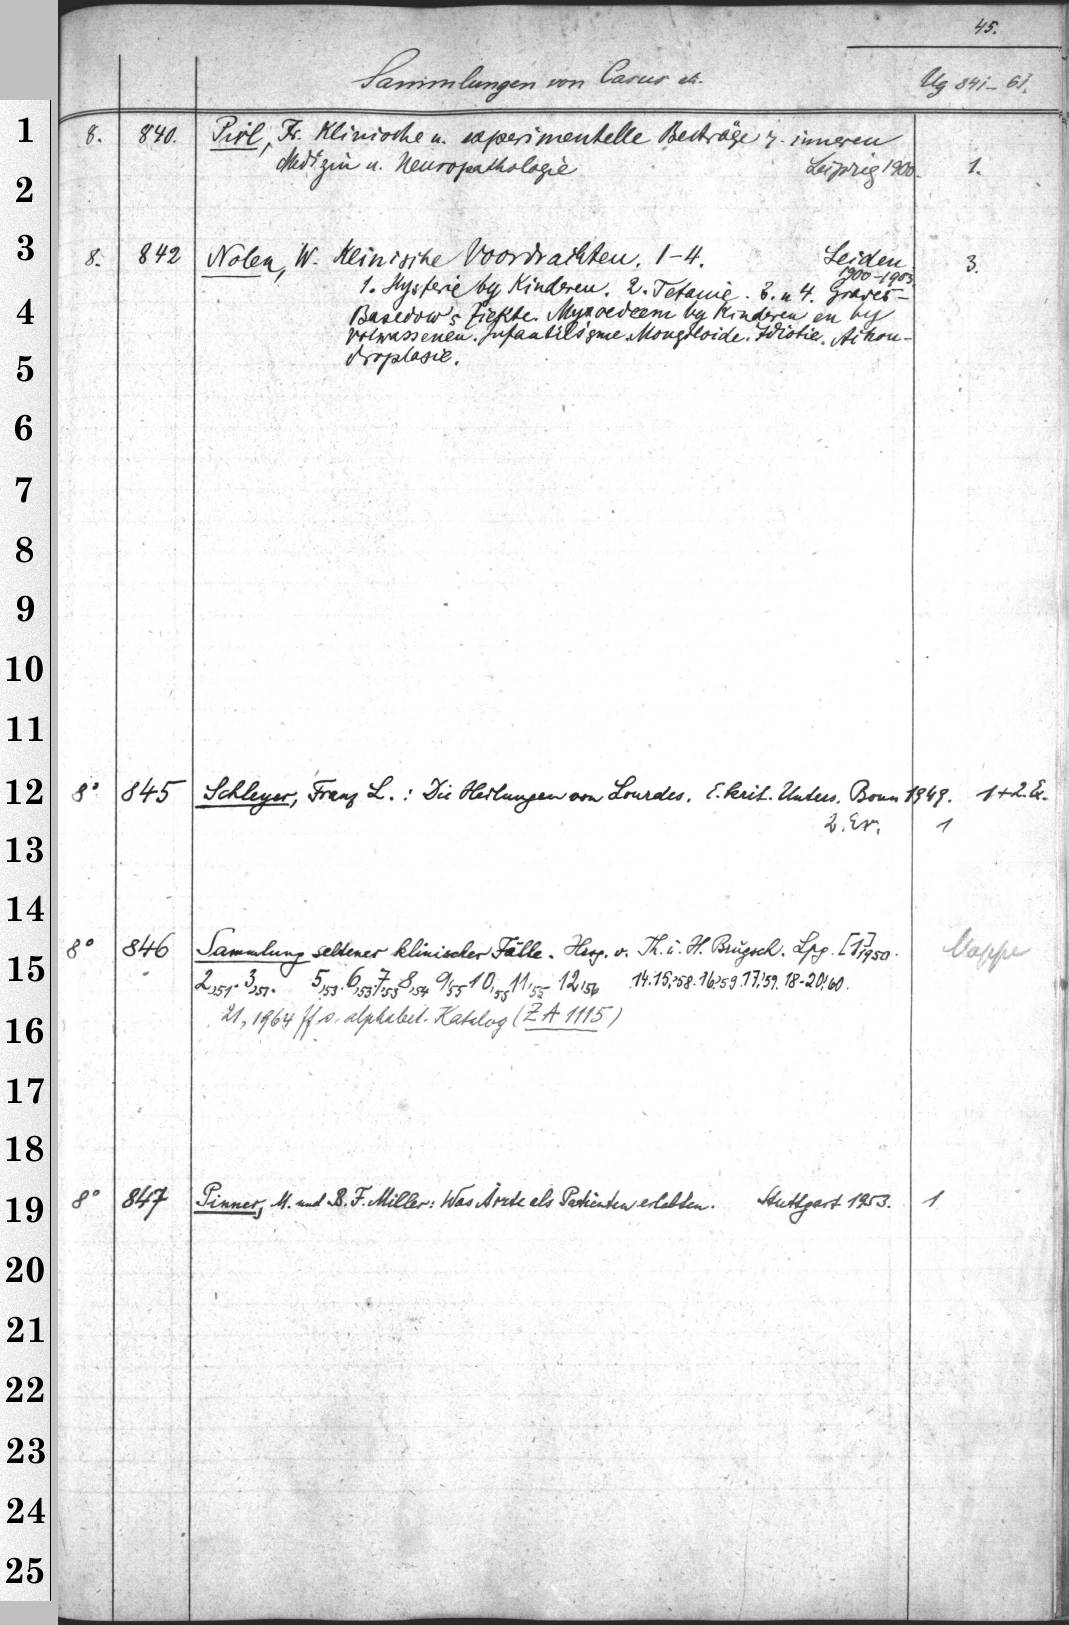 45.
Sammlungen von Casus etc.
Ug 841-61.
1
8. 840. Fr. Klinische u. experimentelle Beiträge z. inneren
Medizin u. Neuropathologie Leipzig 1900. 1.
2
3
8. 842 Nolen, W. Klinische Voordrachten. 1-4. Leiden 3.
1900-1903.
1. Hysterie by Kinderen. 2. Tetanie. 3. u 4. Graves-
4
Basedow's Ziekte. Myxoedeem by Kinderen en by
volwassenen. Infantilisme. Mongoloide. Idiotie. Achon-
droplasie.
5
6
7
8
9
10
11
12
8° 845 Schleyer, Franz L.: Die Heilungen von Lourdes. E. krit. Unters. Bonn 1949. 1+2. Ex.
2. Ex. 1
13
14
8° 846 Sammlung seltener klinischer Fälle. Hrsg. v. Th. u. H. Brugsch. Lpg. [1] 1950. Mappe
15
2,51. 3,51. 5,53. 6,53 7,53 8,54 9,55 10,55 11,55 12,56 14.15,'58. 16,'59. 17,'59. 18-20,'60.
21, 1964 ff s. alphabet. Katalog (ZA 1115)
16
17
18
19
8° 847 Pinner, M. und B. F. Miller: Was Ärzte als Patienten erlebten. Stuttgart 1953. 1
20
21
22
23
24
25